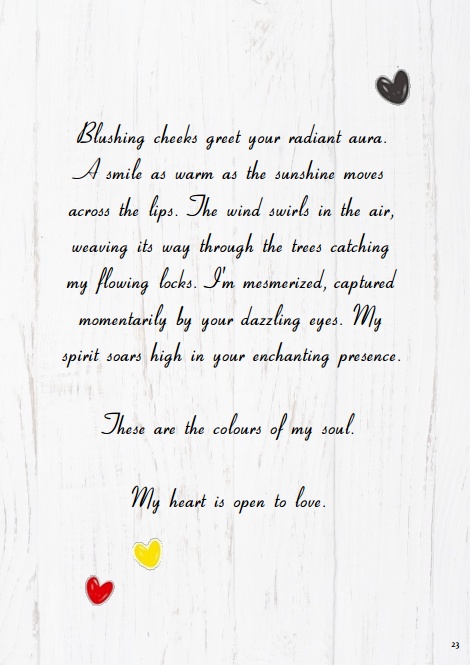 Blushing cheeks greet your radiant aura.
A smile as warm as the sunshine moves
across the lips. The wind swirls in the air,
weaving its way through the trees catching
my flowing locks. I'm mesmerized, captured
momentarily by your dazzling eyes. My
spirit soars high in your enchanting presence.
These are the colours of my soul.
My heart is open to love.
23